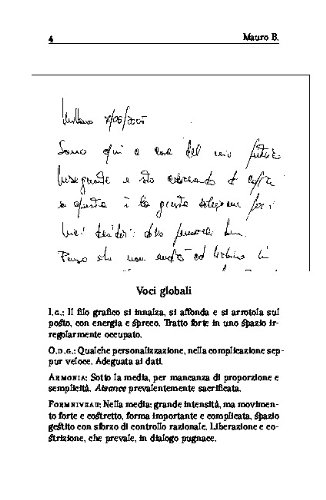 4 Mauro B.
Milano
Sono qui a casa del mio futuro
insegnante e sto cercando di capire
se questa è la giusta soluzione per i
miei
Penso che non andrò ad
Voci globali
I.G.: Il filo grafico si innalza, si affonda e si arrotola sul
posto, con energia e spreco. Tratto forte in uno spazio ir-
regolarmente occupato.
O.D.G.: Qualche personalizzazione, nella complicazione sep-
pur veloce. Adeguata ai dati.
ARMONIA: Sotto la media, per mancanza di proporzione e
semplicità. Aisance prevalentemente sacrificata.
FORMNIVEAU: Nella media: grande intensità, ma movimen-
to forte e costretto, forma importante e complicata, spazio
gestito con sforzo di controllo razionale. Liberazione e co-
strizione, che prevale, in dialogo pugnace.